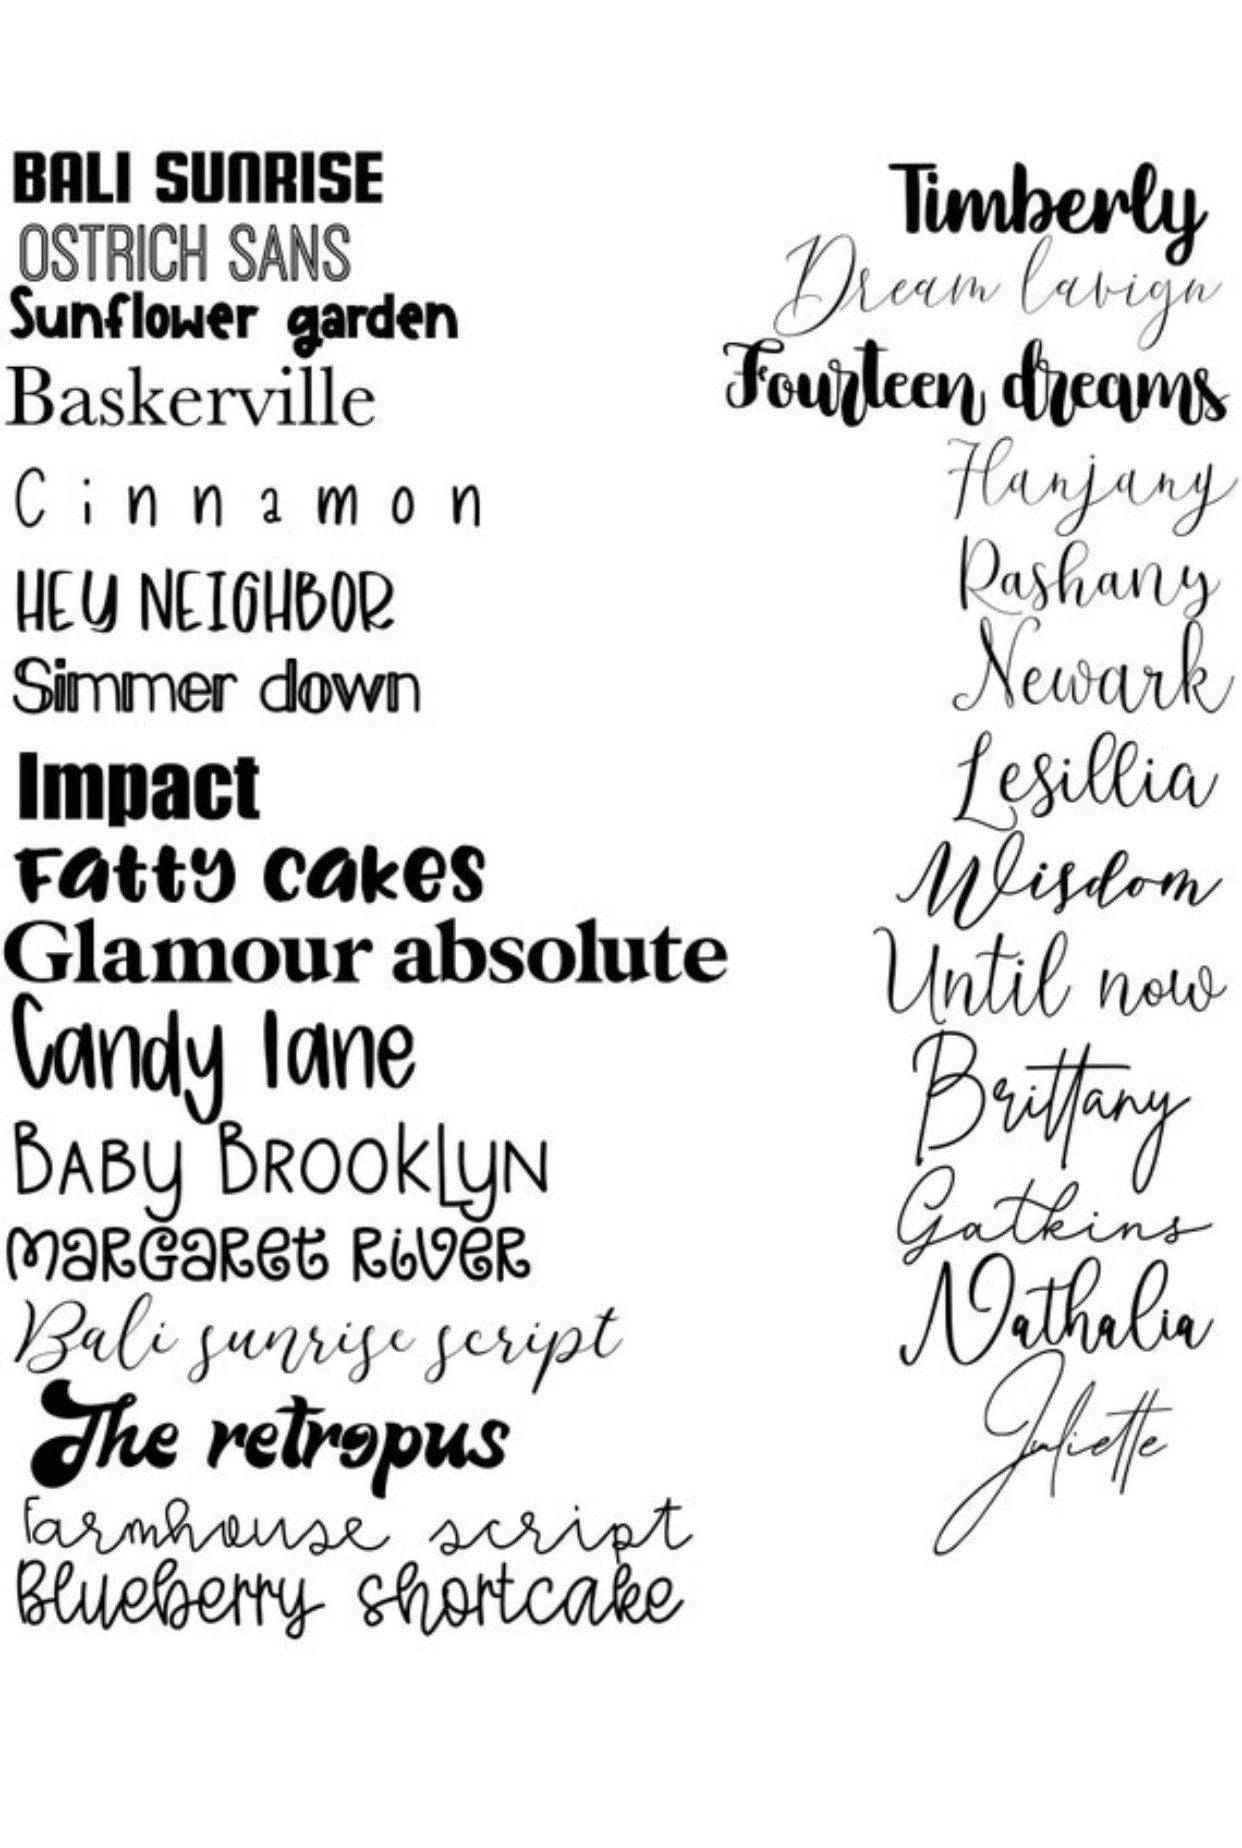 BALI SUNRISE
OSTRICH SANS
Sunflower garden
Baskerville
Cinnamon
HEY NEIGHBOR
Simmer down
Impact
Fatty cakes
Glamour absolute
Candy lane
BABY BROOKLYN
MARGARET RIVER
Bali sunrise script
The retropus
Farmhouse script
Blueberry shortcake
Timberly
Dream lavign
Fourteen dreams
Hanjany
Rashany
Newark
Lesillia
Wisdom
Until now
Brittany
Gatkins
Nathalia
Juliette